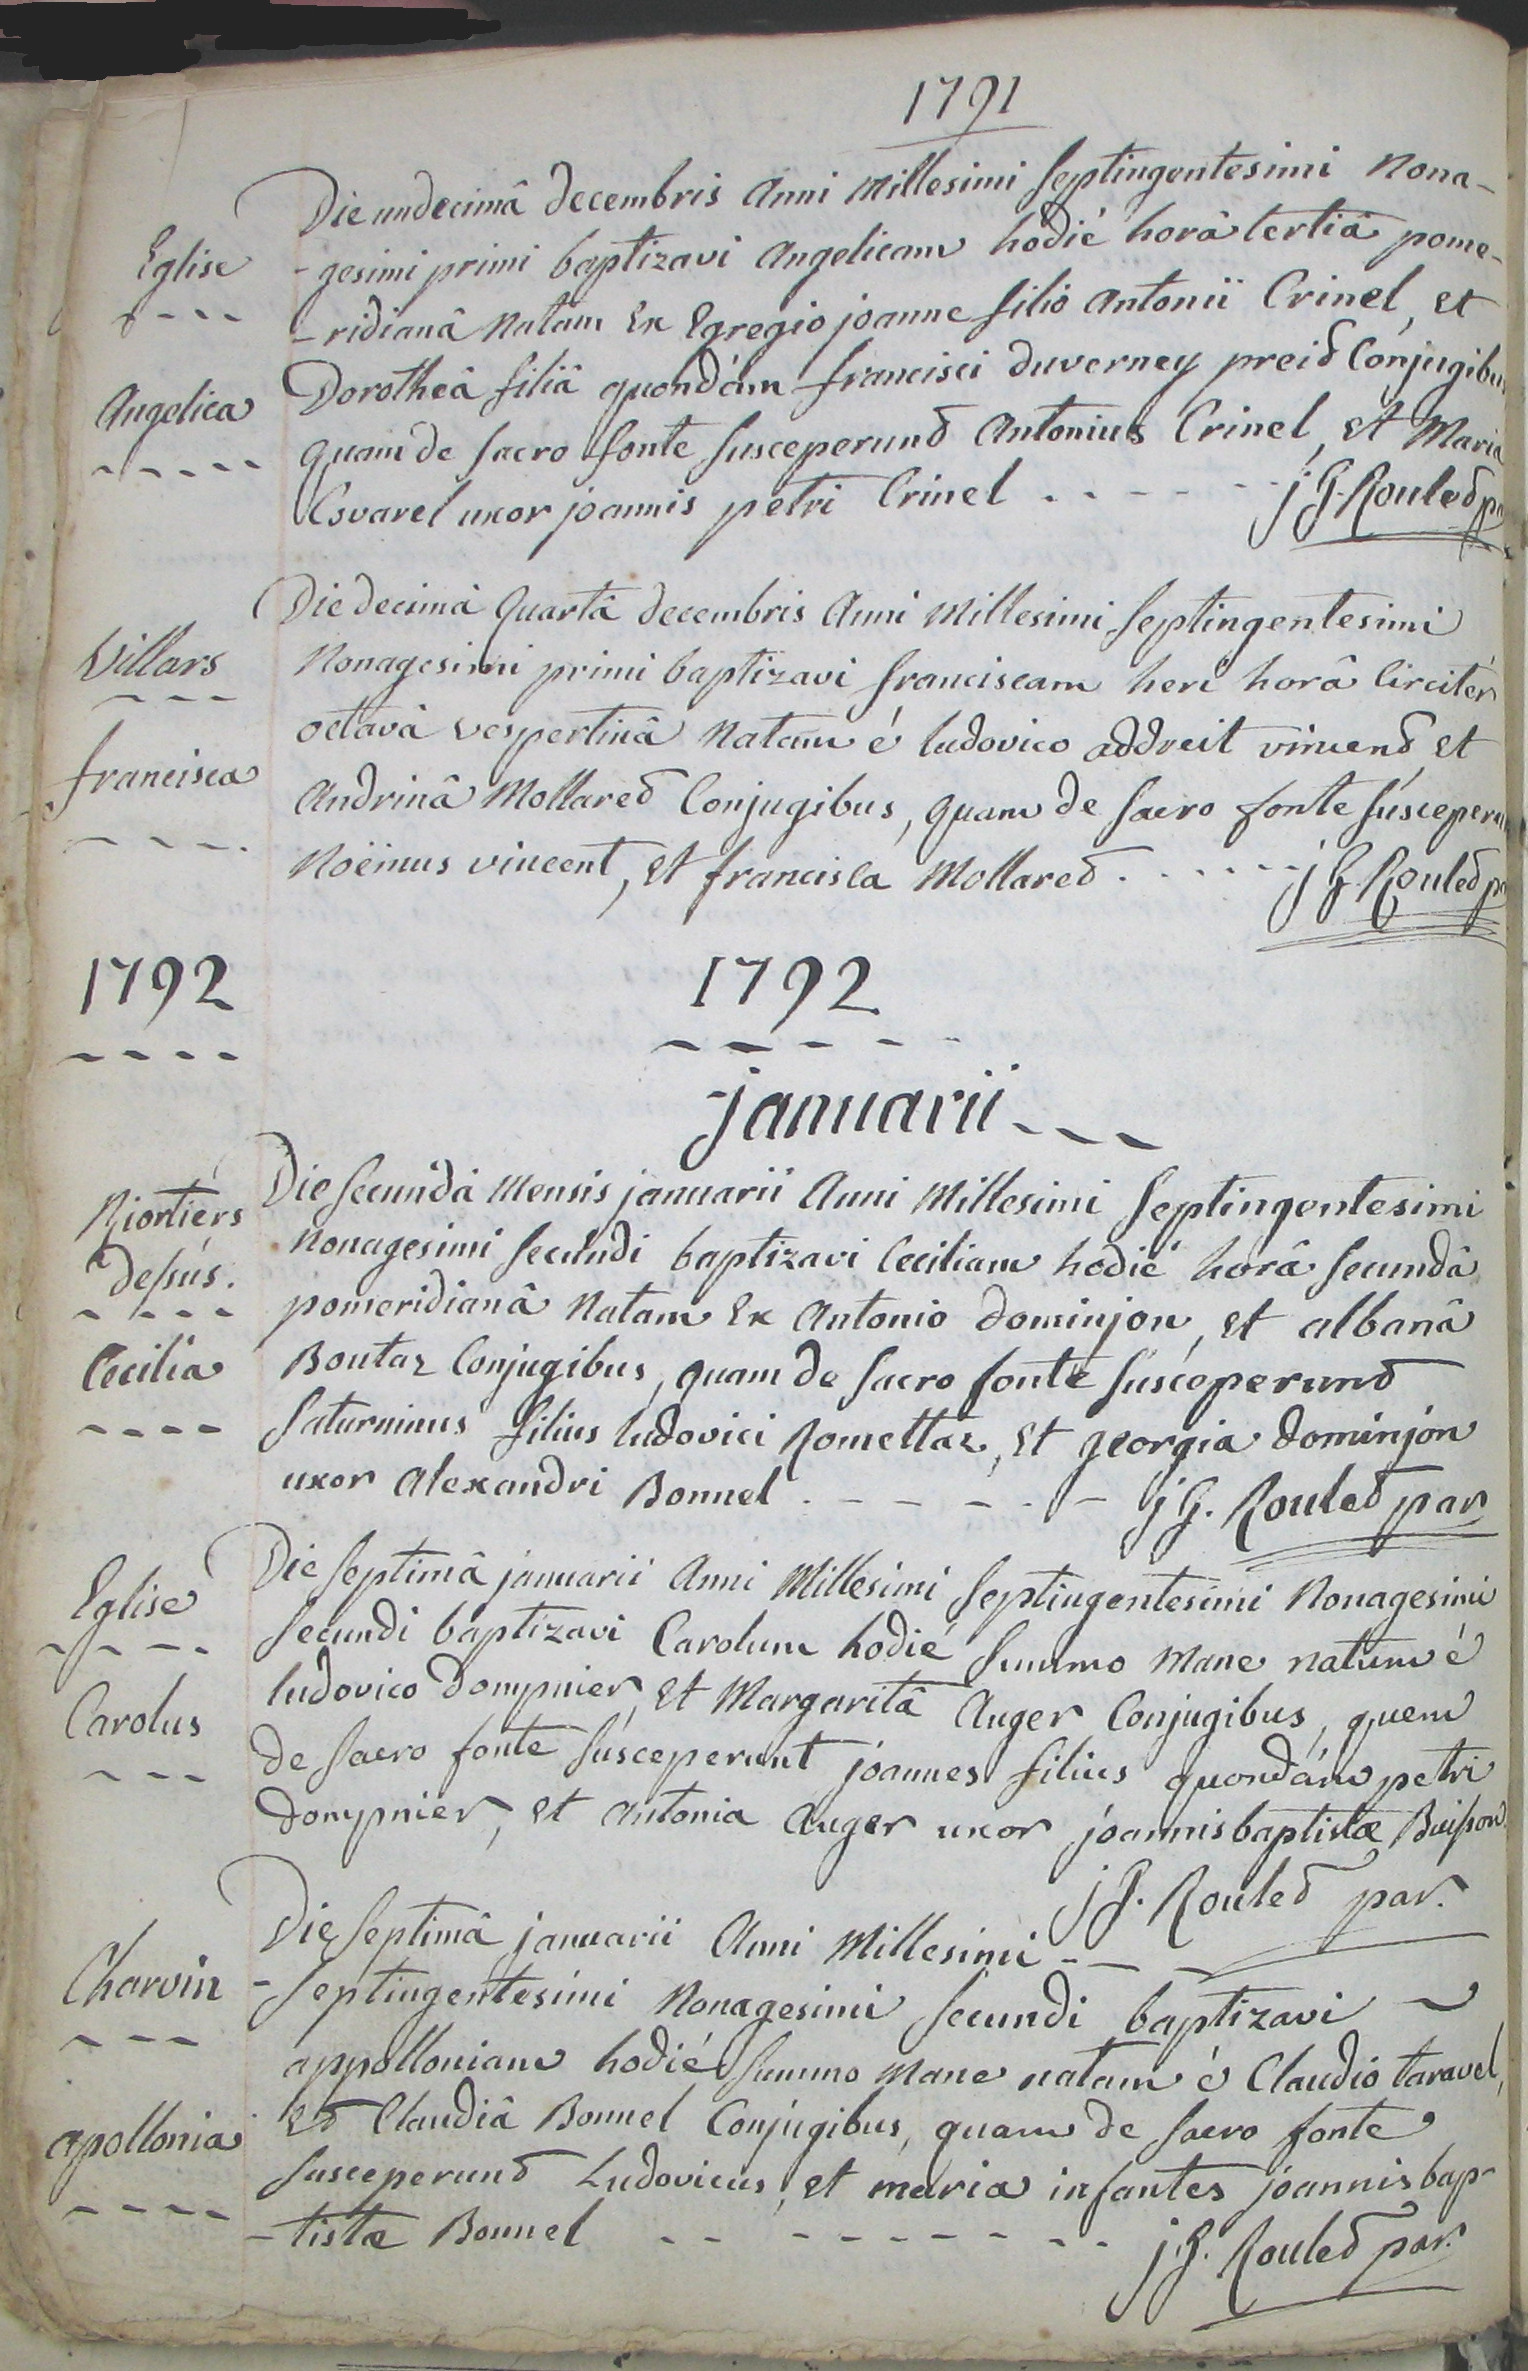 1791
Die undecimâ decembris Anni Millesimi Septingentesimi Nona-
Eglise
-gesimi primi baptizavi Angelicam hodié horâ tertiâ pome-
-ridianâ Natam Ex Egregio joanne filio Antonii Crinel, et
Angelica
Dorotheâ filiâ quondám francisci duverney preid Conjugibus
quam de sacro fonte susceperund Antonius Crinel, et Maria
uxor joannis petri Crinel
j G. Rouled
Die decimâ Quartâ decembris Anni Millesimi Septingentesimi
Villars
Nonagesimi primi baptizavi franciscam heri horâ Circitér
octavâ vespertinâ Natam é ludovico addreit vincend et
francisca
Andrinâ Mollared Conjugibus, quam de sacro fonte súsceperu
Noëinus vincent, et francisca Mollared
j G. Rouled
1792
1792
januarii
Die secundâ Mensis januarii Anni Millesimi Septingentesimi
desús.
Nonagesimi secundi baptizavi Ceciliam hodié horâ secundâ
pomeridianâ Natam Ex Antonio dominjon, et albanâ
Cecilia
Boutaz Conjugibus, quam de sacro fonte súsceperund
Saturninus filius ludovici Romettaz, et georgia dominjon
uxor Alexandri Bonnel
j G. Rouled par
Die septimâ januarii Anni Millesimi Septingentesimi Nonagesimi
Eglise
secundi baptizavi Carolum hodié summo Mane natum é
ludovico dompnier, et Margaritâ Auger Conjugibus, quem
Carolus
de sacro fonte súsceperunt joannes filius quondám petri
dompnier, et Antonia Auger uxor joannis baptistæ Buisson
j G. Rouled par.
Die septimâ januarii Anni Millesimi
Charvin
-septingentesimi Nonagesimi secundi baptizavi
appolloniam hodié summo Mane natam é Claudio taravel,
apollonia
Ed Claudiâ Bonnel Conjugibus, quam de sacro fonte
susceperund Ludovicus, et maria infantes joannis bap-
-tistæ Bonnel
j. G. Rouled par.